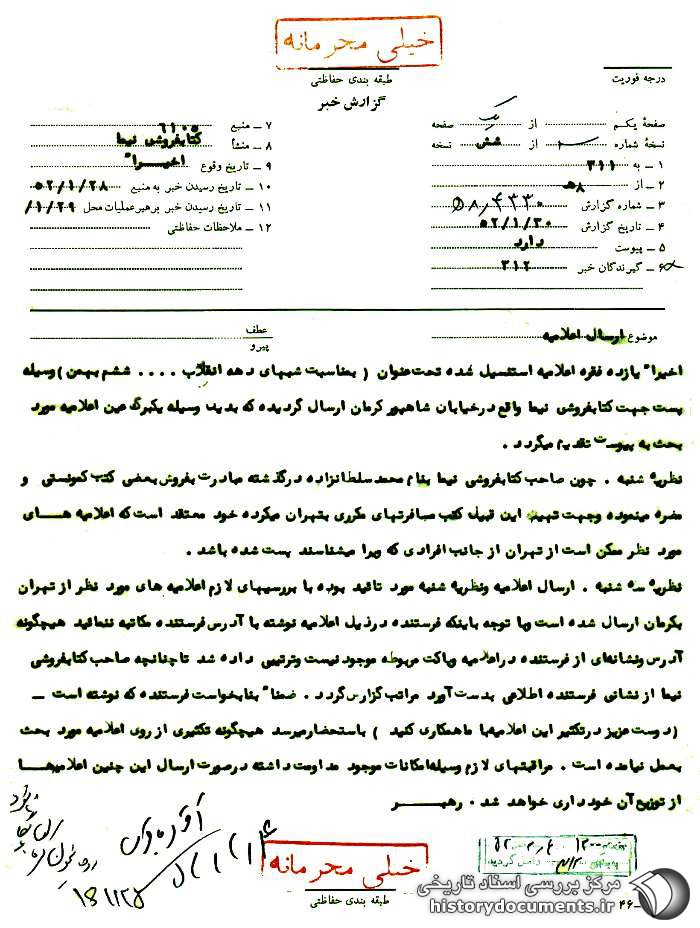 خیلی محرمانه
طبقه بندی حفاظتی
گزارش خبر
درجه فوریت
صفحهٔ یکم از یک صفحه
نسخهٔ شماره از شش نسخه
۱ ـ به ۳۱۱
۲ ـ از ۸ هـ
۳ ـ شماره گزارش
۴ ـ تاریخ گزارش ۵۲/۱/۳۰
۵ ـ پیوست دارد
۶ ـ گیرندگان خبر ۳۱۲
۷ ـ منبع ۶۱۰۵
۸ ـ منشأ کتابفروشی نیما
۹ ـ تاریخ وقوع اخیراً
۱۰ ـ تاریخ رسیدن خبر به منبع ۵۲/۱/۲۸
۱۱ ـ تاریخ رسیدن خبر برهبرعملیات محل ۱/۲۹/
۱۲ ـ ملاحظات حفاظتی
موضوع ارسال اعلامیه
عطف
پیرو
اخیراً یازده فقره اعلامیه استنسیل شده تحت عنوان ( بمناسبت شبهای دهه انقلاب .... ششم بهمن ) وسیله
پست جهت کتابفروشی نیما واقع درخیابان شاهپور کرمان ارسال گردیده که بدین وسیله یکبرگ عین اعلامیه مورد
بحث به پیوست تقدیم میگردد .
نظریه شنبه . چون صاحب کتابفروشی نیما بنام محمد سلطانزاده درگذشته مبادرت بفروش بعضی کتب کمونیستی و
مضره مینموده وجهت تهیه این قبیل کتب مسافرتهای مکرری بتهران میکرده خود معتقد است که اعلامیه هــای
مورد نظر ممکن است از تهران از جانب افرادی که ویرا میشناسند پست شده باشد .
نظریه سه شنبه . ارسال اعلامیه ونظریه شنبه مورد تائید بوده با بررسیهای لازم اعلامیه های مورد نظر از تهران
بکرمان ارسال شده وبا توجه باینکه فرستنده درذیل اعلامیه نوشته با آدرس فرستنده مکاتبه ننمائید هیچگونه
آدرس ونشانه‌ای از فرستنده دراعلامیه وپاکت مربوطه موجود نیست وترتیبی داده شد تا چنانچه صاحب کتابفروشی
نیما از نشانی فرستنده اطلاعی بدست آورد مراتب گزارش گردد . ضمناً بنابخواست فرستنده که نوشته است ــ
( دوست عزیز درتکثیر این اعلامیه با ماهمکاری کنید ) باستحضار میرسد هیچگونه تکثیری از روی اعلامیه مورد بحث
بعمل نیامده است . مراقبتهای لازم وسیله امکانات موجود مداومت داشته درصورت ارسال این چنین اعلامیه‌ها
از توزیع آن خود داری خواهد شد . رهبــر
خیلی محرمانه
طبقه بندی حفاظتی
مرکز بررسی اسناد تاریخی
historydocuments.ir
۴۶ـ